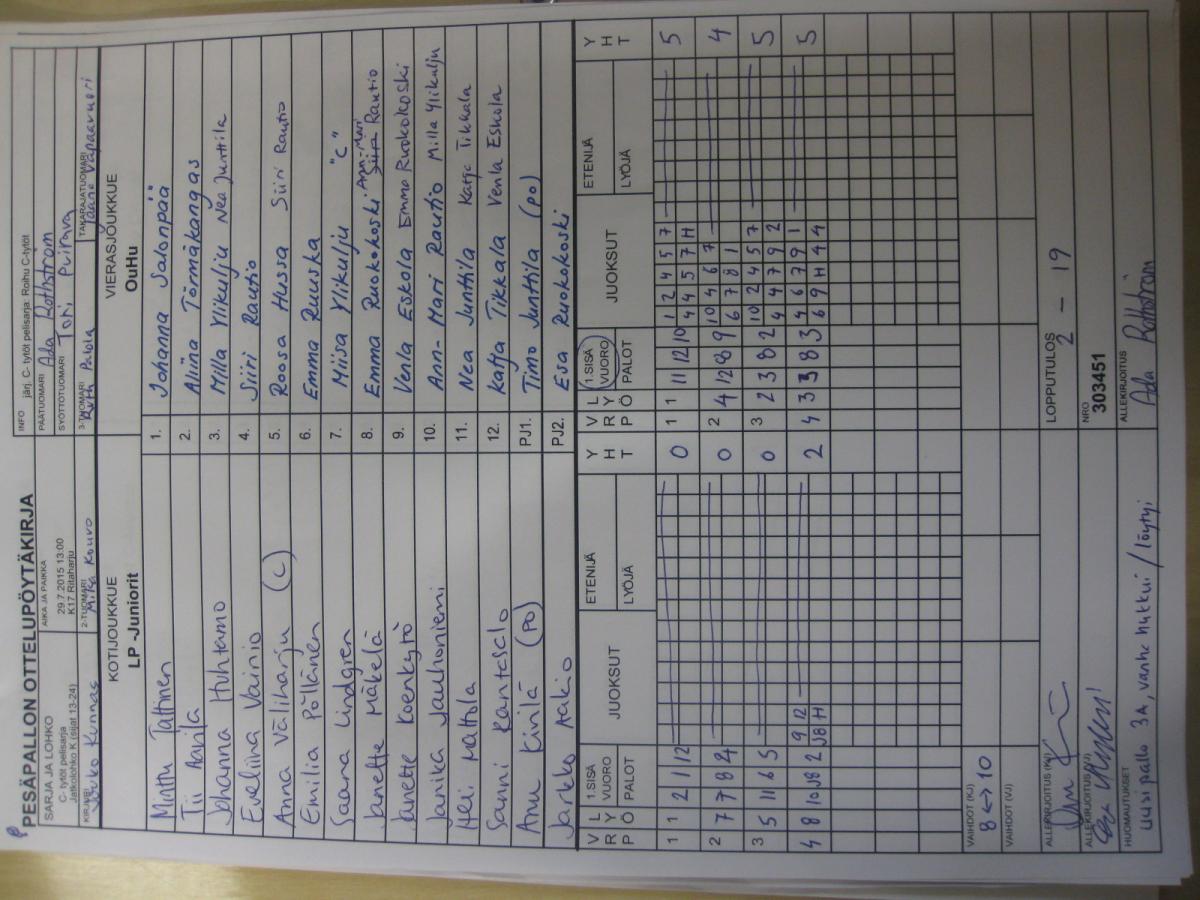 PESÄPALLON OTTELUPÖYTÄKIRJA
SARJA JA LOHKO
C- tytöt pelisarja
Jatkolohko K (sijat 13-24)
AIKA JA PAIKKA
29.7.2015 13:00
K17 Ritaharju
INFO järj. C- tytöt pelisarja: Roihu C-tytöt
PÄÄTUOMARI Ada Rothström
SYÖTTÖTUOMARI Toni Puirava
KIRJURI Jouko Kunnas
2-TUOMARI Mika Kouvo
3-TUOMARI Pakola
TAKARAJATUOMARI Vapaavuori
KOTIJOUKKUE
LP -Juniorit
VIERASJOUKKUE
OuHu
Minttu Tattinen 1. Johanna Salonpää
Tii Aavila 2. Aliina Törmäkangas
Johanna Huhtamo 3. Milla Ylikulju Nea Junttila
Eveliina Vainio 4. Siiri Rautio
Anna Väliharju (C) 5. Roosa Hussa Siiri Rautio
Emilia Pöllänen 6. Emma Ruuska
Saana Lindgren 7. Miisa Ylikulju "C"
Janette Mäkelä 8. Emma Ruokokoski Ann-Mari Rautio
Janette Koenkytö 9. Venla Eskola Emma Ruokokoski
Janika Jauhoniemi 10. Ann-Mari Rautio Milla Ylikulju
Heli Mattola 11. Nea Junttila Katja Tikkala
Sanni Rantasalo 12. Katja Tikkala Venla Eskola
Anu Kivilä (PO) PJ1. Timo Junttila (po)
Jarkko Aakio PJ2. Esa Ruokokoski
V R P L Y Ö 1.SISÄ VUORO PALOT JUOKSUT ETENIJÄ LYÖJÄ Y H T
V R P L Y Ö 1.SISÄ VUORO PALOT JUOKSUT ETENIJÄ LYÖJÄ Y H T
1 1 2 1 12 0 1 1 11 12 10 1 2 4 5 7 5
4 4 5 7 H
2 7 7 8 2 4 0 2 4 12 8 9 10 4 6 7 4
6 7 8 1
3 5 11 6 5 0 3 2 3 8 2 10 2 4 5 7 5
4 4 7 9 2
4 8 10 J8 2 9 12 2 4 3 3 8 3 4 6 7 9 1 5
J8 H 6 9 H 4 4
VAIHDOT (KJ)
8 <-> 10
VAIHDOT (VJ)
ALLEKIRJOITUS (KJ)
LOPPUTULOS
2 - 19
ALLEKIRJOITUS (VJ)
NRO
303451
HUOMAUTUKSET
uusi pallo 3A, vanha hukkui / löytyi
ALLEKIRJOITUS
Ada Rothström